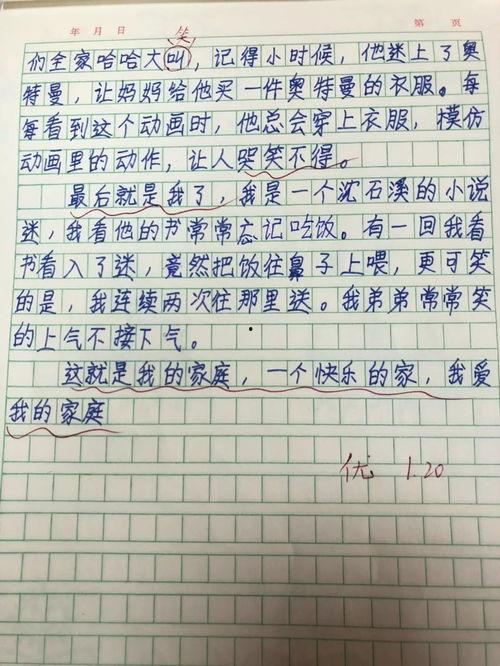 年 月 日 第 页
笑
们全家哈哈大叫,记得小时候,他迷上了奥
特曼,让妈妈给他买一件奥特曼的衣服。每
每看到这个动画时,他总会穿上衣服,模仿
动画里的动作,让人哭笑不得。
最后就是我了,我是一个沈石溪的小说
迷,我看他的书常常忘记吃饭。有一回我看
书看入了迷,竟然把饭往鼻子上喂,更可笑
的是,我连续两次往那里送。我弟弟常常笑
的上气不接下气。
这就是我的家庭,一个快乐的家,我爱
我的家庭
优 1.20